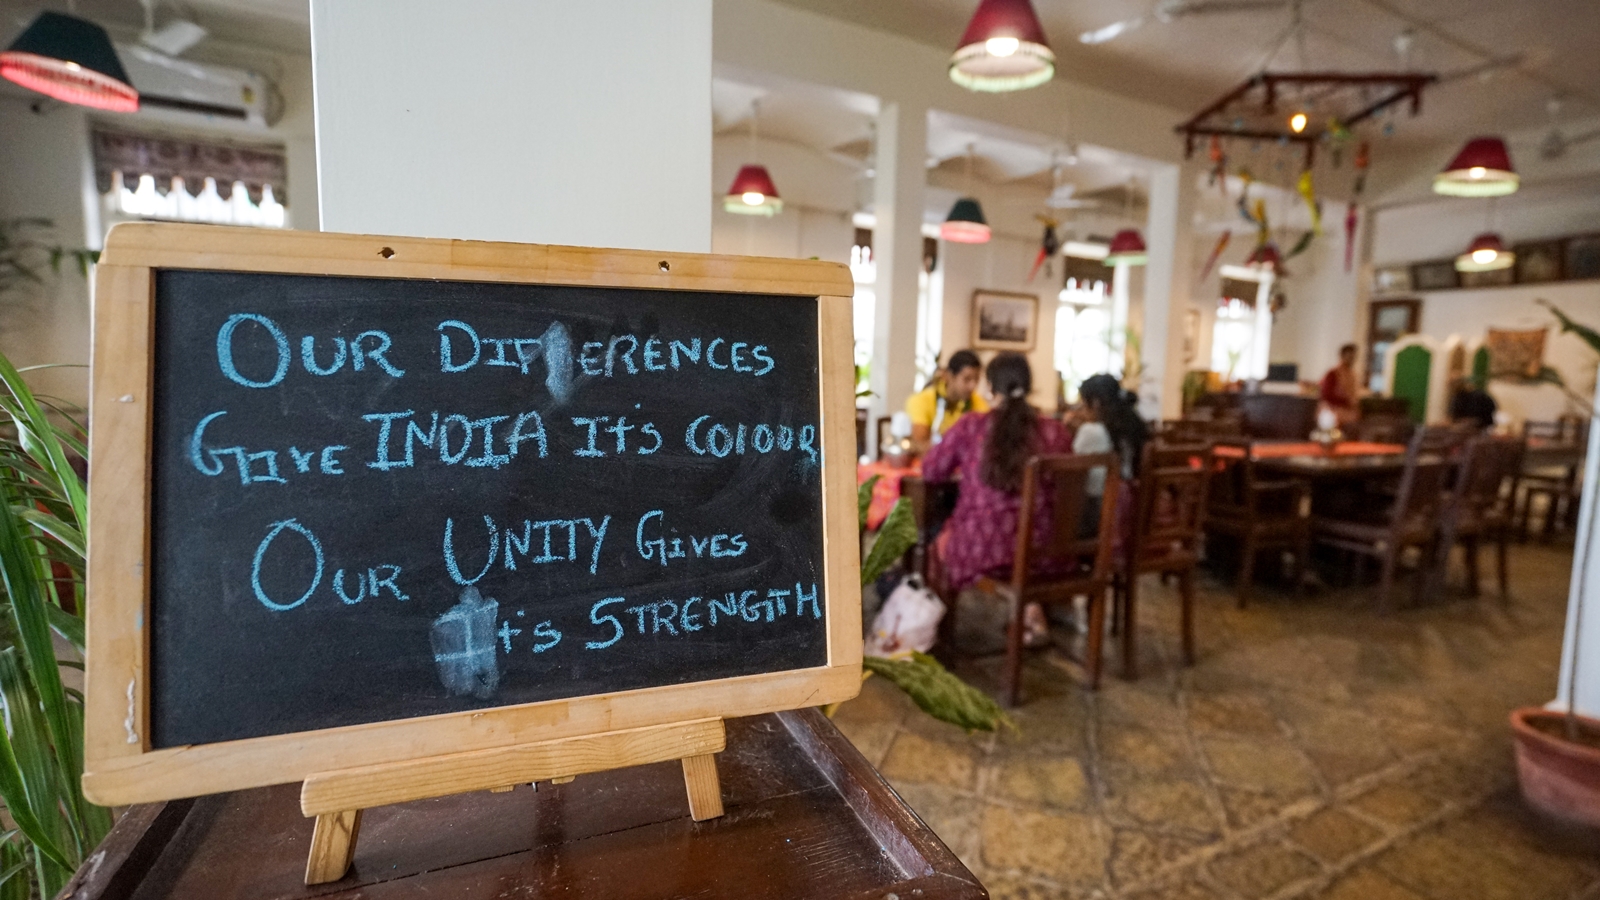 OUR DIFFERENCES
GIVE INDIA It's COLOUR
OUR UNITY GIVES
It's STRENGTH